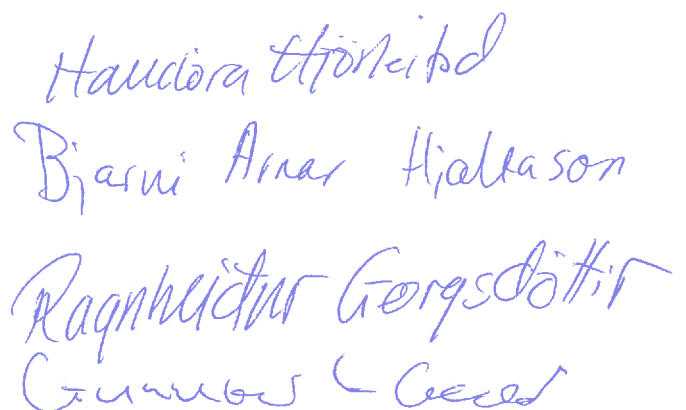 Halldóra Hjörleifsd
Bjarni Arnar Hjaltason
Ragnheiður Georgsdóttir